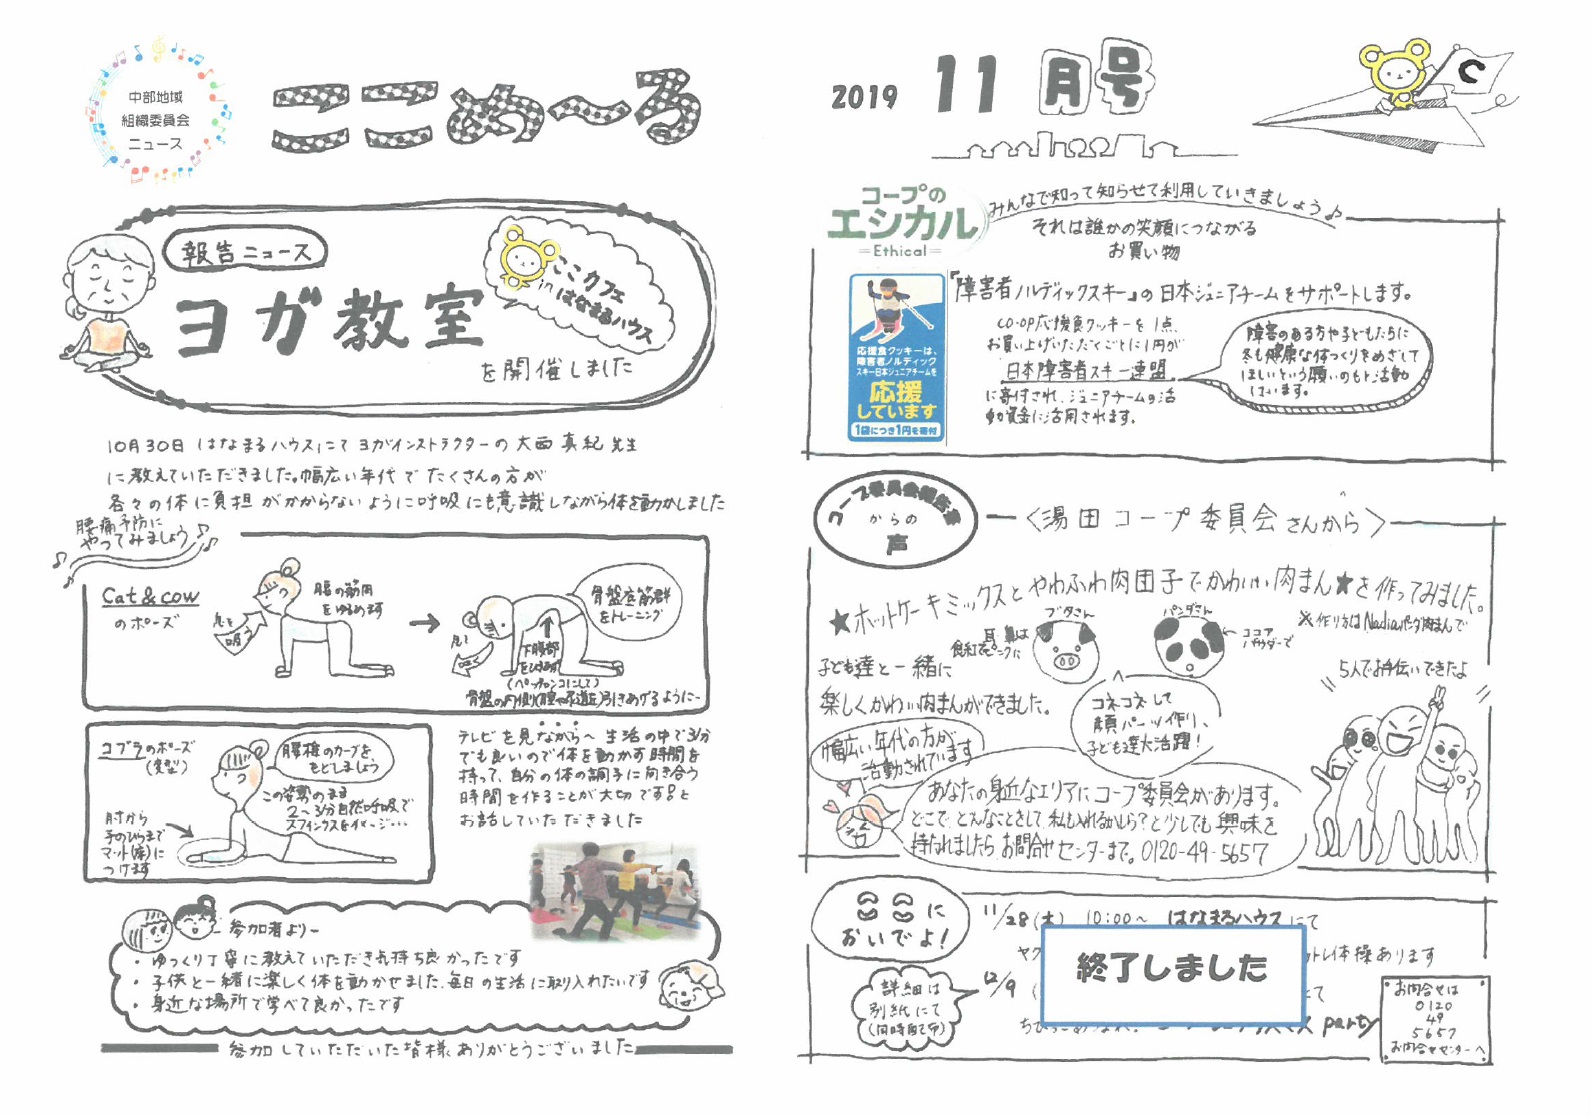 中部地域
組織委員会
ニュース
ここめ～る
2019 11月号
報告ニュース
ヨガ教室
を開催しました
ここカフェ
in はなまるハウス
10月30日 はなまるハウスにて ヨガインストラクターの 大西 真紀 先生
に教えていただきました。幅広い年代で たくさんの方が
各々の体に負担がかからないように呼吸にも意識しながら体を動かしました
腰痛予防に
やってみましょう♪
Cat & cow
のポーズ
息を
吸う
腰の筋肉
をゆるめます
→
息を
吐く
骨盤底筋群
をトレーニング
下腹部
をひきあげ
(ペッタンコにして)
骨盤の内側(膣や尿道を)引きあげるように～
コブラのポーズ
(変型)
腰椎のカーブを、
もどしましょう
この姿勢のまま
2～3分自然呼吸で
スフィンクスをイメージ…
肘から
手のひらまで
マット(床)に
つけます
テレビを見ながら～生活の中で3分
でも良いので体を動かす時間を
持って、自分の体の調子に向き合う
時間を作ることが大切です!と
お話していただきました
参加者より～
・ゆっくり丁寧に教えていただき気持ち良かったです
・子供と一緒に楽しく体を動かせました、毎日の生活に取り入れたいです
・身近な場所で学べて良かったです
参加していただいた皆様、ありがとうございました
コープの
エシカル
Ethical
みんなで知って知らせて利用していきましょう♪
それは誰かの笑顔につながる
お買い物
「障害者ノルディックスキー」の日本ジュニアチームをサポートします。
応援食クッキーは、
障害者ノルディック
スキー日本ジュニアチームを
応援
しています
1袋につき1円を寄付
CO-OP応援食クッキーを1点、
お買い上げいただくごとに1円が
日本障害者スキー連盟
に寄付され、ジュニアチームの活
動資金に活用されます。
障害のある方や子どもたちに
冬も健康な体つくりをめざして
ほしいという願いのもと活動
しています。
コープ委員会報告書
からの
声
〈湯田コープ委員会さんから〉
★ホットケーキミックスとやわふわ肉団子でかわいい肉まん★を作ってみました。
※作り方はNadiaパンダ肉まんで
ブタさん
耳、鼻は
食紅でピンクに
パンダさん
ココア
パウダーで
子ども達と一緒に
楽しくかわいい肉まんができました。
コネコネして
顔パーツ作り、
子ども達大活躍!
5人でお手伝いできたよ
幅広い年代の方が
活動されています
あなたの身近なエリアにコープ委員会があります。
どこで、どんなことをして、私も入れるかしら?と少しでも興味を
持たれましたら、お問合せセンターまで。0120-49-5657
ここに
おいでよ!
詳細は
別紙にて
(同時配布)
11/28(木) 10:00～ はなまるハウスにて
ヤク
トレ体操あります
12/9
にて
終了しました
party
お問合せは
0120
49
5657
お問合せセンターへ